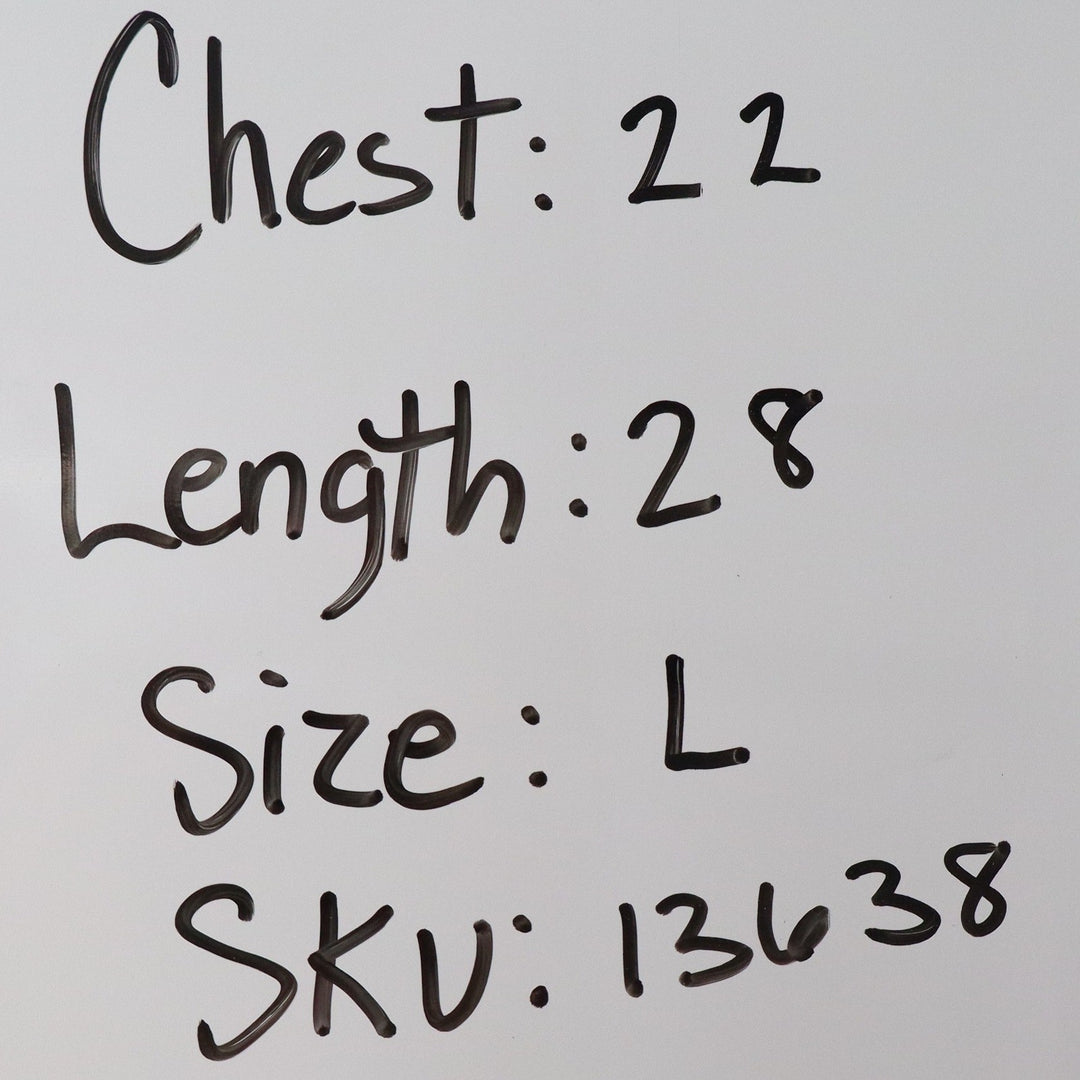 Chest: 22
Length: 28
Size: L
SKU: 13638